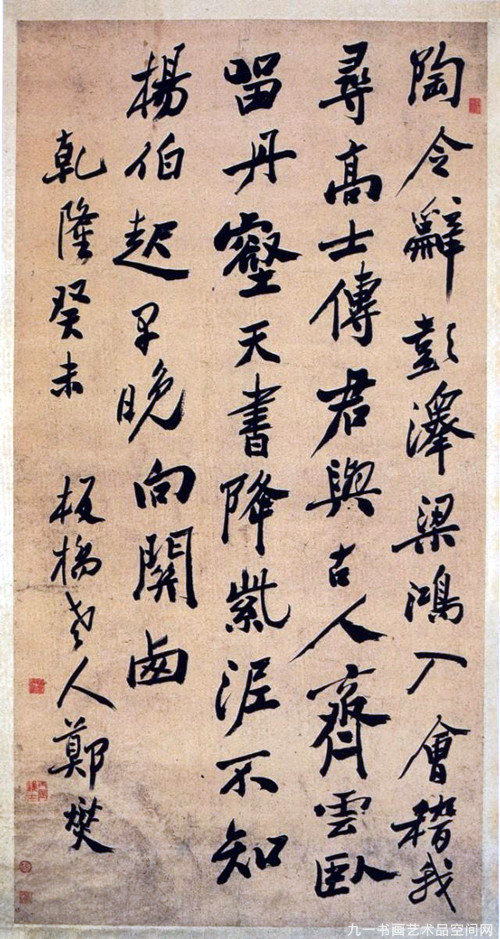 陶令辭彭澤梁鴻入會稽我
尋高士傳君與古人齊雲臥
留丹壑天書降紫泥不知
楊伯起早晚向關西
乾隆癸未 板橋老人鄭燮
九一书画艺术品空间网